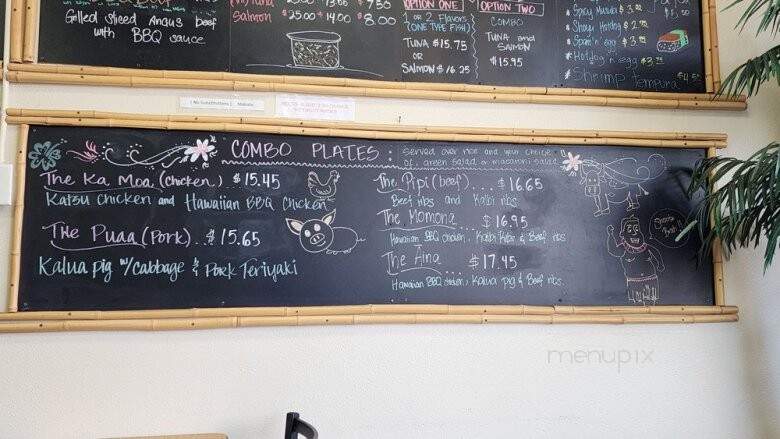 Grilled sliced Angus beef
with BBQ sauce
Salmon $25.00 $14.00 $8.00
OPTION ONE
1 OR 2 Flavors
(ONE TYPE FISH)
TUNA $15.75
OR
SALMON $16.25
OPTION TWO
COMBO
TUNA and
SALMON
$15.95
Spicy Musubi $3
Shoyu Hotdog $2
Spam n' egg $3
Hotdog n' egg $3.75
Shrimp Tempura $4.50
COMBO PLATES: Served over rice and your choice
of: green salad or macaroni salad
The Ka Moa (chicken) $15.45
Katsu chicken and Hawaiian BBQ Chicken
The Puaa (Pork) .. $15.65
Kalua pig w/cabbage & Pork Teriyaki
The Pipi (beef) ... $16.65
Beef ribs and Kalbi ribs
The Momona $16.95
Hawaiian BBQ chicken, Kalbi Ribs & Beef ribs
The Aina $17.45
Hawaiian BBQ chicken, Kalua pig & Beef ribs.
menupix